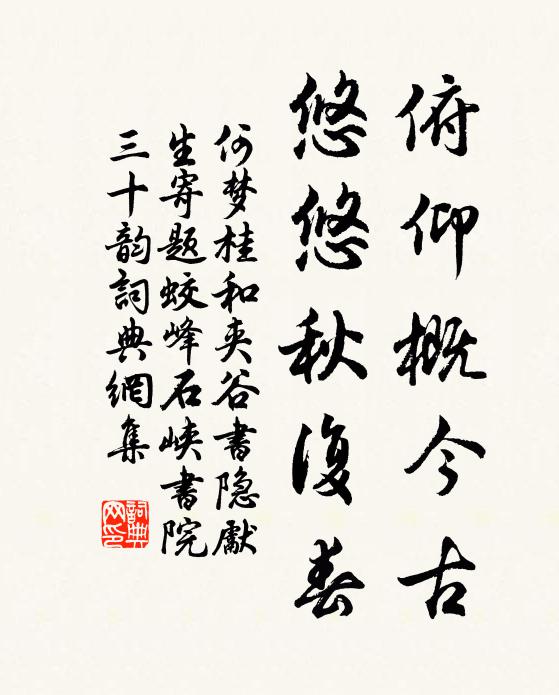 俯仰概今古
悠悠秋復春
何梦桂和夹谷書隐獻
生寄题蛟峰石峡書院
三十韵詞典網集
詞典网印